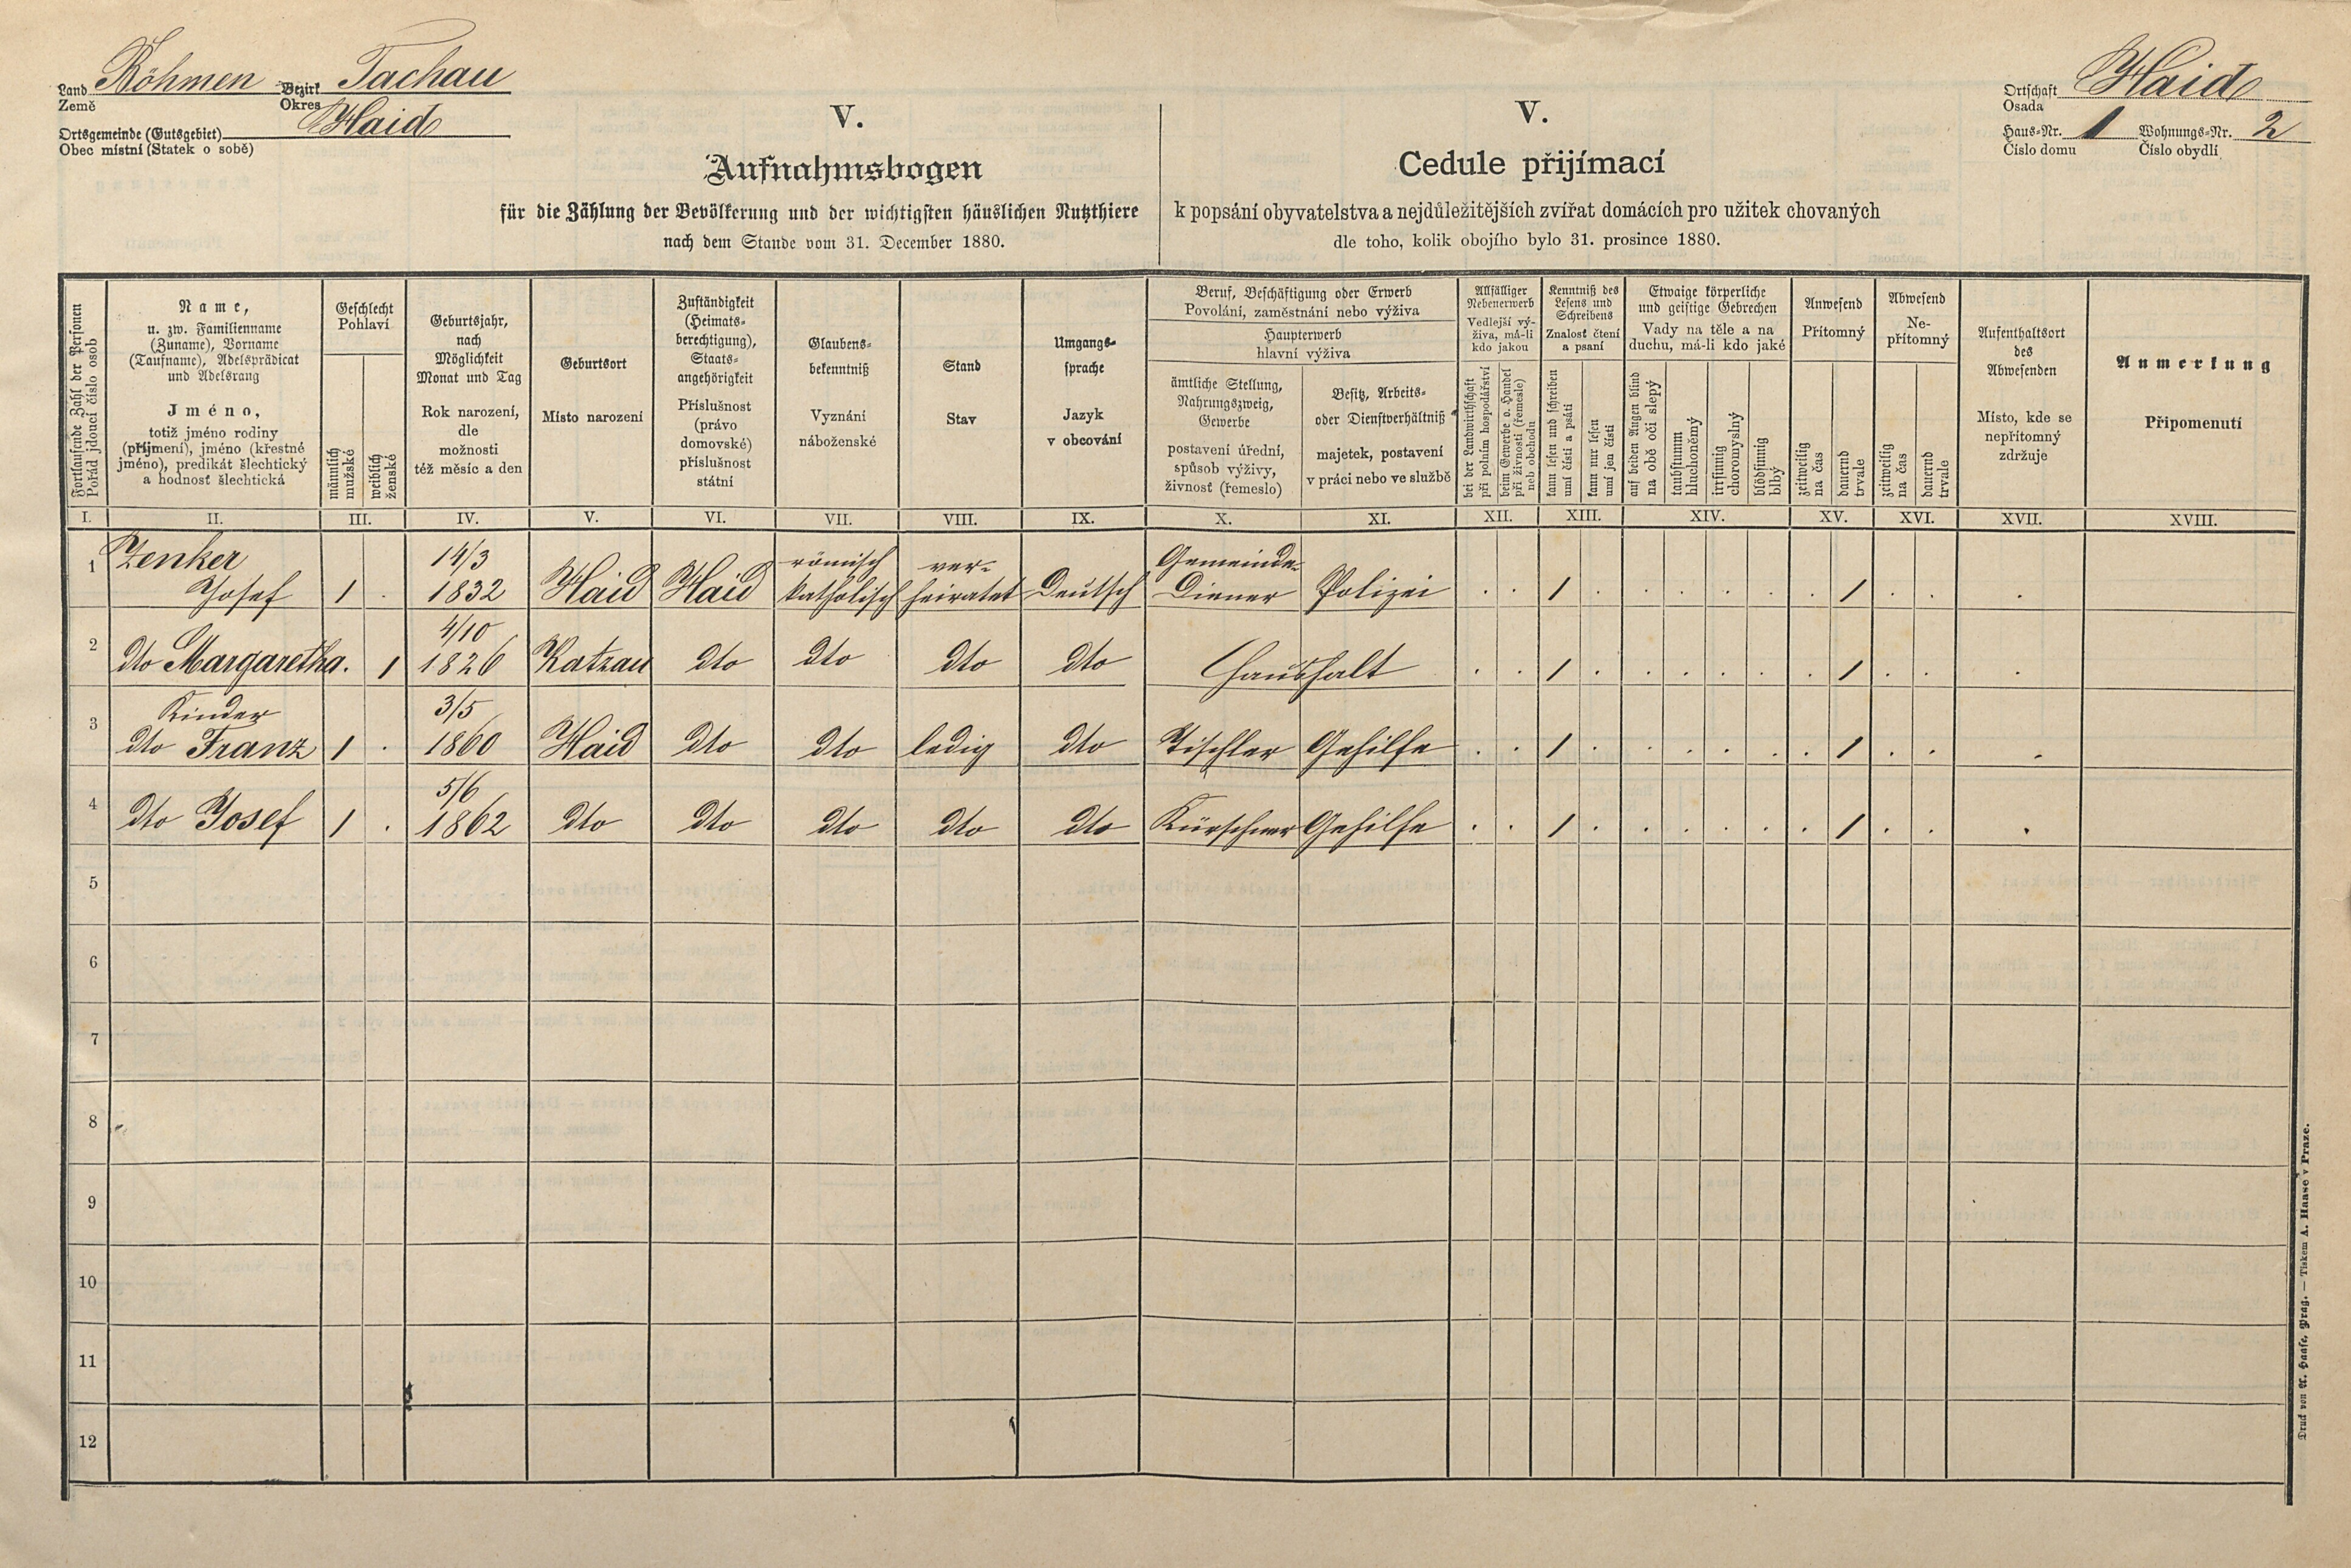 Land Böhmen Bezirk Tachau
Země Okres
Ortsgemeinde (Gutsgebiet) Haid
Obec místní (Statek o sobě)
V.
Aufnahmsbogen
für die Zählung der Bevölkerung und der wichtigsten häuslichen Nutzthiere
nach dem Stande vom 31. December 1880.
V.
Cedule přijímací
k popsání obyvatelstva a nejdůležitějších zvířat domácích pro užitek chovaných
dle toho, kolik obojího bylo 31. prosince 1880.
Ortschaft Haid
Osada
Haus-Nr. 1 Wohnungs-Nr. 2
Číslo domu Číslo obydlí
Fortlaufende Zahl der Personen
Pořád jdoucí číslo osob
Name,
u. zw. Familienname
(Zuname), Vorname
(Taufname), Adelsprädicat
und Adelsrang
Jméno,
totiž jméno rodiny
(příjmení), jméno (křestné
jméno), predikát šlechtický
a hodnosť šlechtická
Geschlecht
Pohlaví
männlich
mužské
weiblich
ženské
Geburtsjahr,
nach
Möglichkeit
Monat und Tag
Rok narození,
dle
možnosti
též měsíc a den
Geburtsort
Místo narození
Zuständigkeit
(Heimats-
berechtigung),
Staats-
angehörigkeit
Příslušnost
(právo
domovské)
příslušnost
státní
Glaubens-
bekenntniß
Vyznání
náboženské
Stand
Stav
Umgangs-
sprache
Jazyk
v obcování
Beruf, Beschäftigung oder Erwerb
Povolání, zaměstnání nebo výživa
Haupterwerb
hlavní výživa
ämtliche Stellung,
Nahrungszweig,
Gewerbe
postavení úřední,
spůsob výživy,
živnosť (řemeslo)
Besitz, Arbeits-
oder Dienstverhältniß
majetek, postavení
v práci nebo ve službě
Allfälliger
Nebenerwerb
Vedlejší vý-
živa, má-li
kdo jakou
bei der Landwirthschaft
při polním hospodářství
beim Gewerbe o. Handel
při živnosti (řemesle)
neb obchodu
Kenntniß des
Lesens und
Schreibens
Znalosť čtení
a psaní
kann lesen und schreiben
umí čísti a psáti
kann nur lesen
umí jen čísti
Etwaige körperliche
und geistige Gebrechen
Vady na těle a na
duchu, má-li kdo jaké
auf beiden Augen blind
na obě oči slepý
taubstumm
hluchoněmý
irrsinnig
choromyslný
blödsinnig
blbý
Anwesend
Přítomný
zeitweilig
na čas
dauernd
trvale
Abwesend
Ne-
přítomný
zeitweilig
na čas
dauernd
trvale
Aufenthaltsort
des
Abwesenden
Místo, kde se
nepřítomný
zdržuje
Anmerkung
Připomenutí
I. II. III. IV. V. VI. VII. VIII. IX. X. XI. XII. XIII. XIV. XV. XVI. XVII. XVIII.
Zenker 14/3 römisch ver- Gemeinde-
1 Josef 1 . 1832 Haid Haid katholisch heiratet Deutsch Diener Polizei . . 1 . . . . . . 1 . . .
4/10
2 dto Margaretha. 1 1826 Katzau dto dto dto dto Haushalt . . 1 . . . . . . 1 . . .
Kinder 3/5
3 dto Franz 1 . 1860 Haid dto dto ledig dto Tischler Gehilfe . . 1 . . . . . . 1 . . .
5/6
4 dto Josef 1 . 1862 dto dto dto dto dto Kürschner Gehilfe . . 1 . . . . . . 1 . . .
5
6
7
8
9
10
11
12
Druck von A. Haase, Prag. — Tiskem A. Haase v Praze.